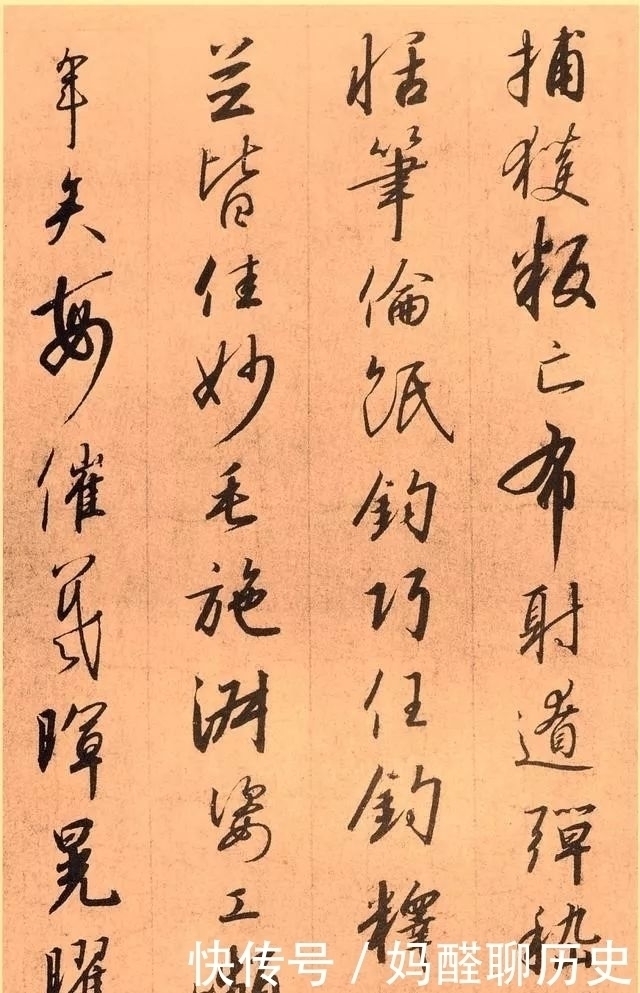 捕獲叛亡布射遼彈嵇
恬筆倫紙鈞巧任釣釋
並皆佳妙毛施淑姿工
年矢每催羲暉晃曜
快传号/妈醛聊历史